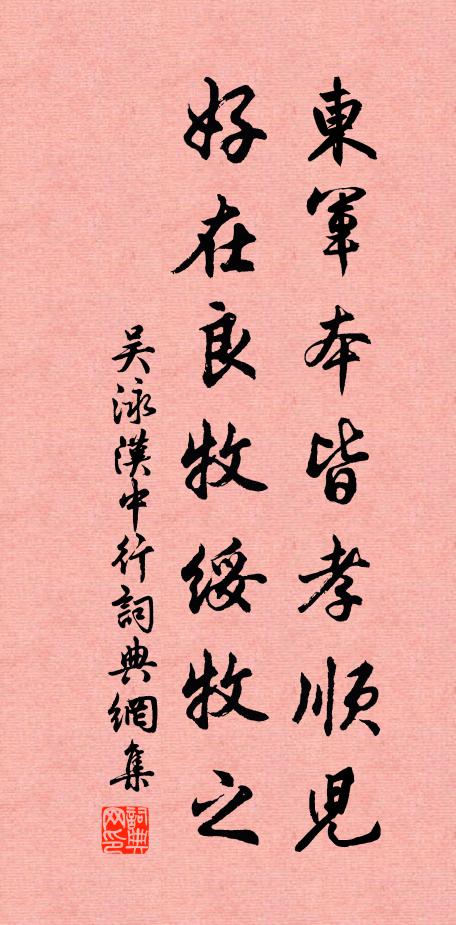 東軍本皆孝順兒
好在良牧綏牧之
吴泳漢中行詞典網集
詞典网印